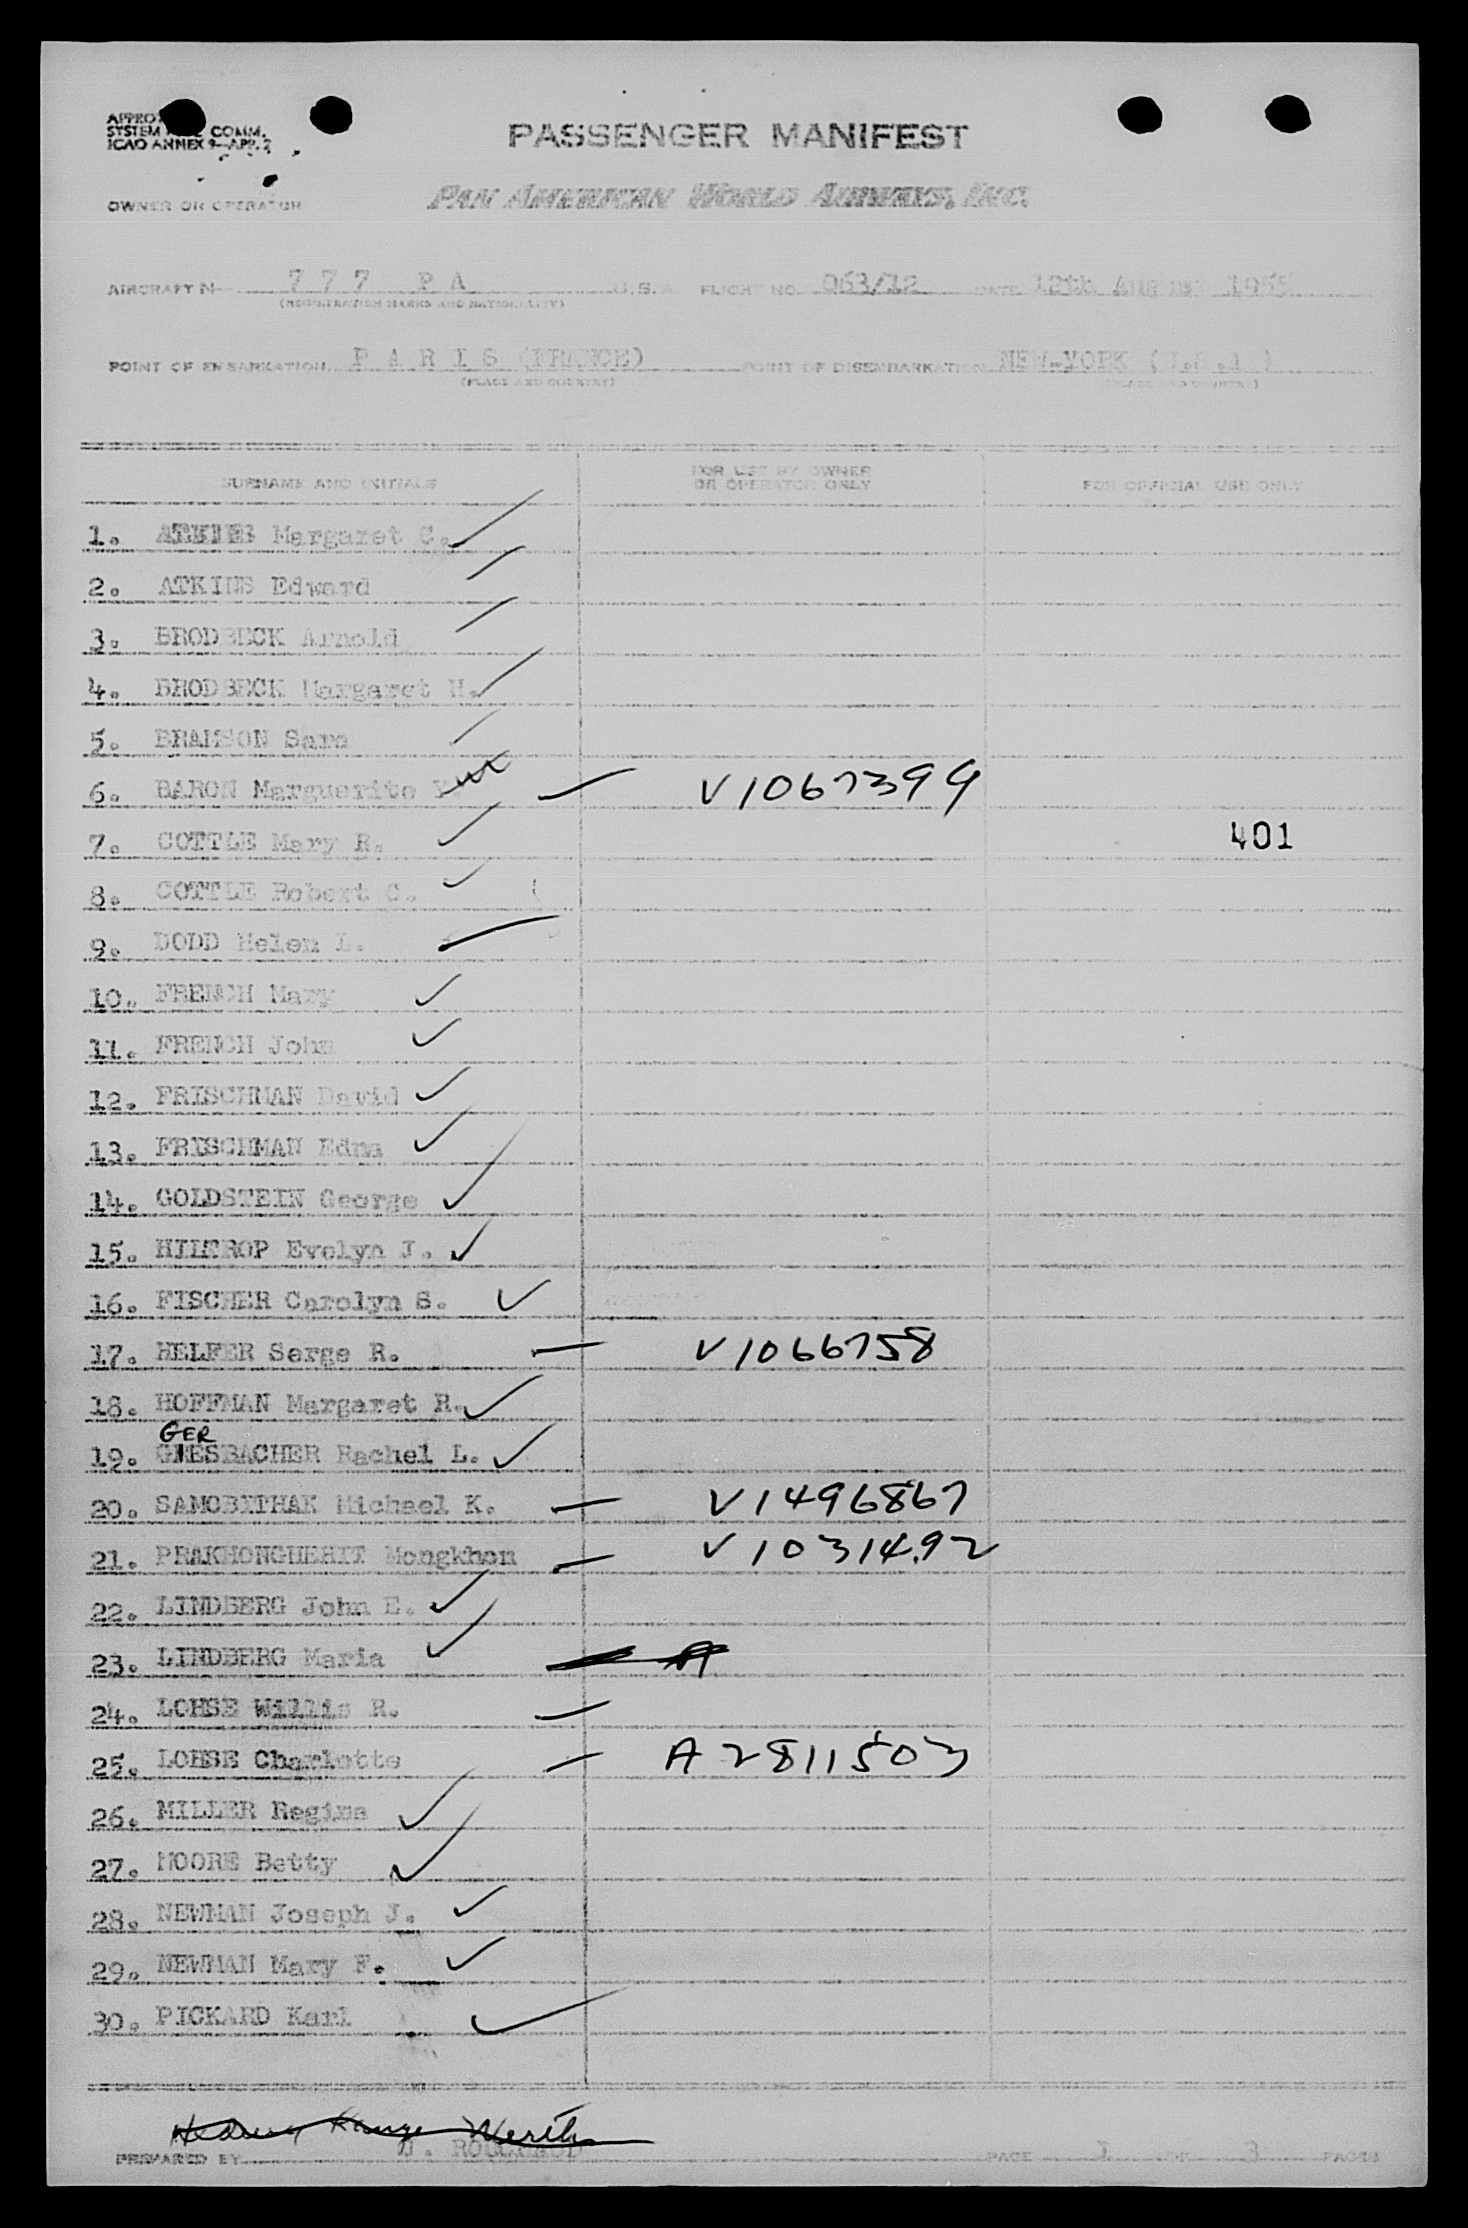 APPRO
SYSTEM COMM.
ICAO ANNEX 9—APP. 2
PASSENGER MANIFEST
OWNER OR OPERATOR
PAN AMERICAN WORLD AIRWAYS, INC.
AIRCRAFT N 777 PA U.S.A. FLIGHT NO. 063/12 DATE 12th August 1955
(REGISTRATION MARKS AND NATIONALITY)
POINT OF EMBARKATION PARIS (FRANCE) POINT OF DISEMBARKATION NEW-YORK (U.S.A.)
(PLACE AND COUNTRY) (PLACE AND COUNTRY)
SURNAME AND INITIALS FOR USE BY OWNER OR OPERATOR ONLY FOR OFFICIAL USE ONLY
1. ATKINS Margaret C.
2. ATKINS Edward
3. BRODBECK Arnold
4. BRODBECK Margaret H.
5. BRAMSON Sara
6. BARON Marguerite V1067399
7. COTTLE Mary R. 401
8. COTTLE Robert C.
9. DODD Helen L.
10. FRENCH Mary
11. FRENCH John
12. FRISCHMAN David
13. FRISCHMAN Edna
14. GOLDSTEIN George
15. HILTROP Evelyn J.
16. FISCHER Carolyn S.
17. HELFER Serge R. V1066758
18. HOFFMAN Margaret R.
GER
19. GRIESBACHER Rachel L.
20. SAMOBITHAK Michael K. V1496867
21. PRAKHONGHERIT Mongkhon V1031492
22. LINDBERG John E.
23. LINDBERG Maria A
24. LOHSE Willis R.
25. LOHSE Charlotte A2811503
26. MILLER Regina
27. MOORE Betty
28. NEWMAN Joseph J.
29. NEWMAN Mary F.
30. PICKARD Karl
PREPARED BY PAGE 1 OF 3 PAGES